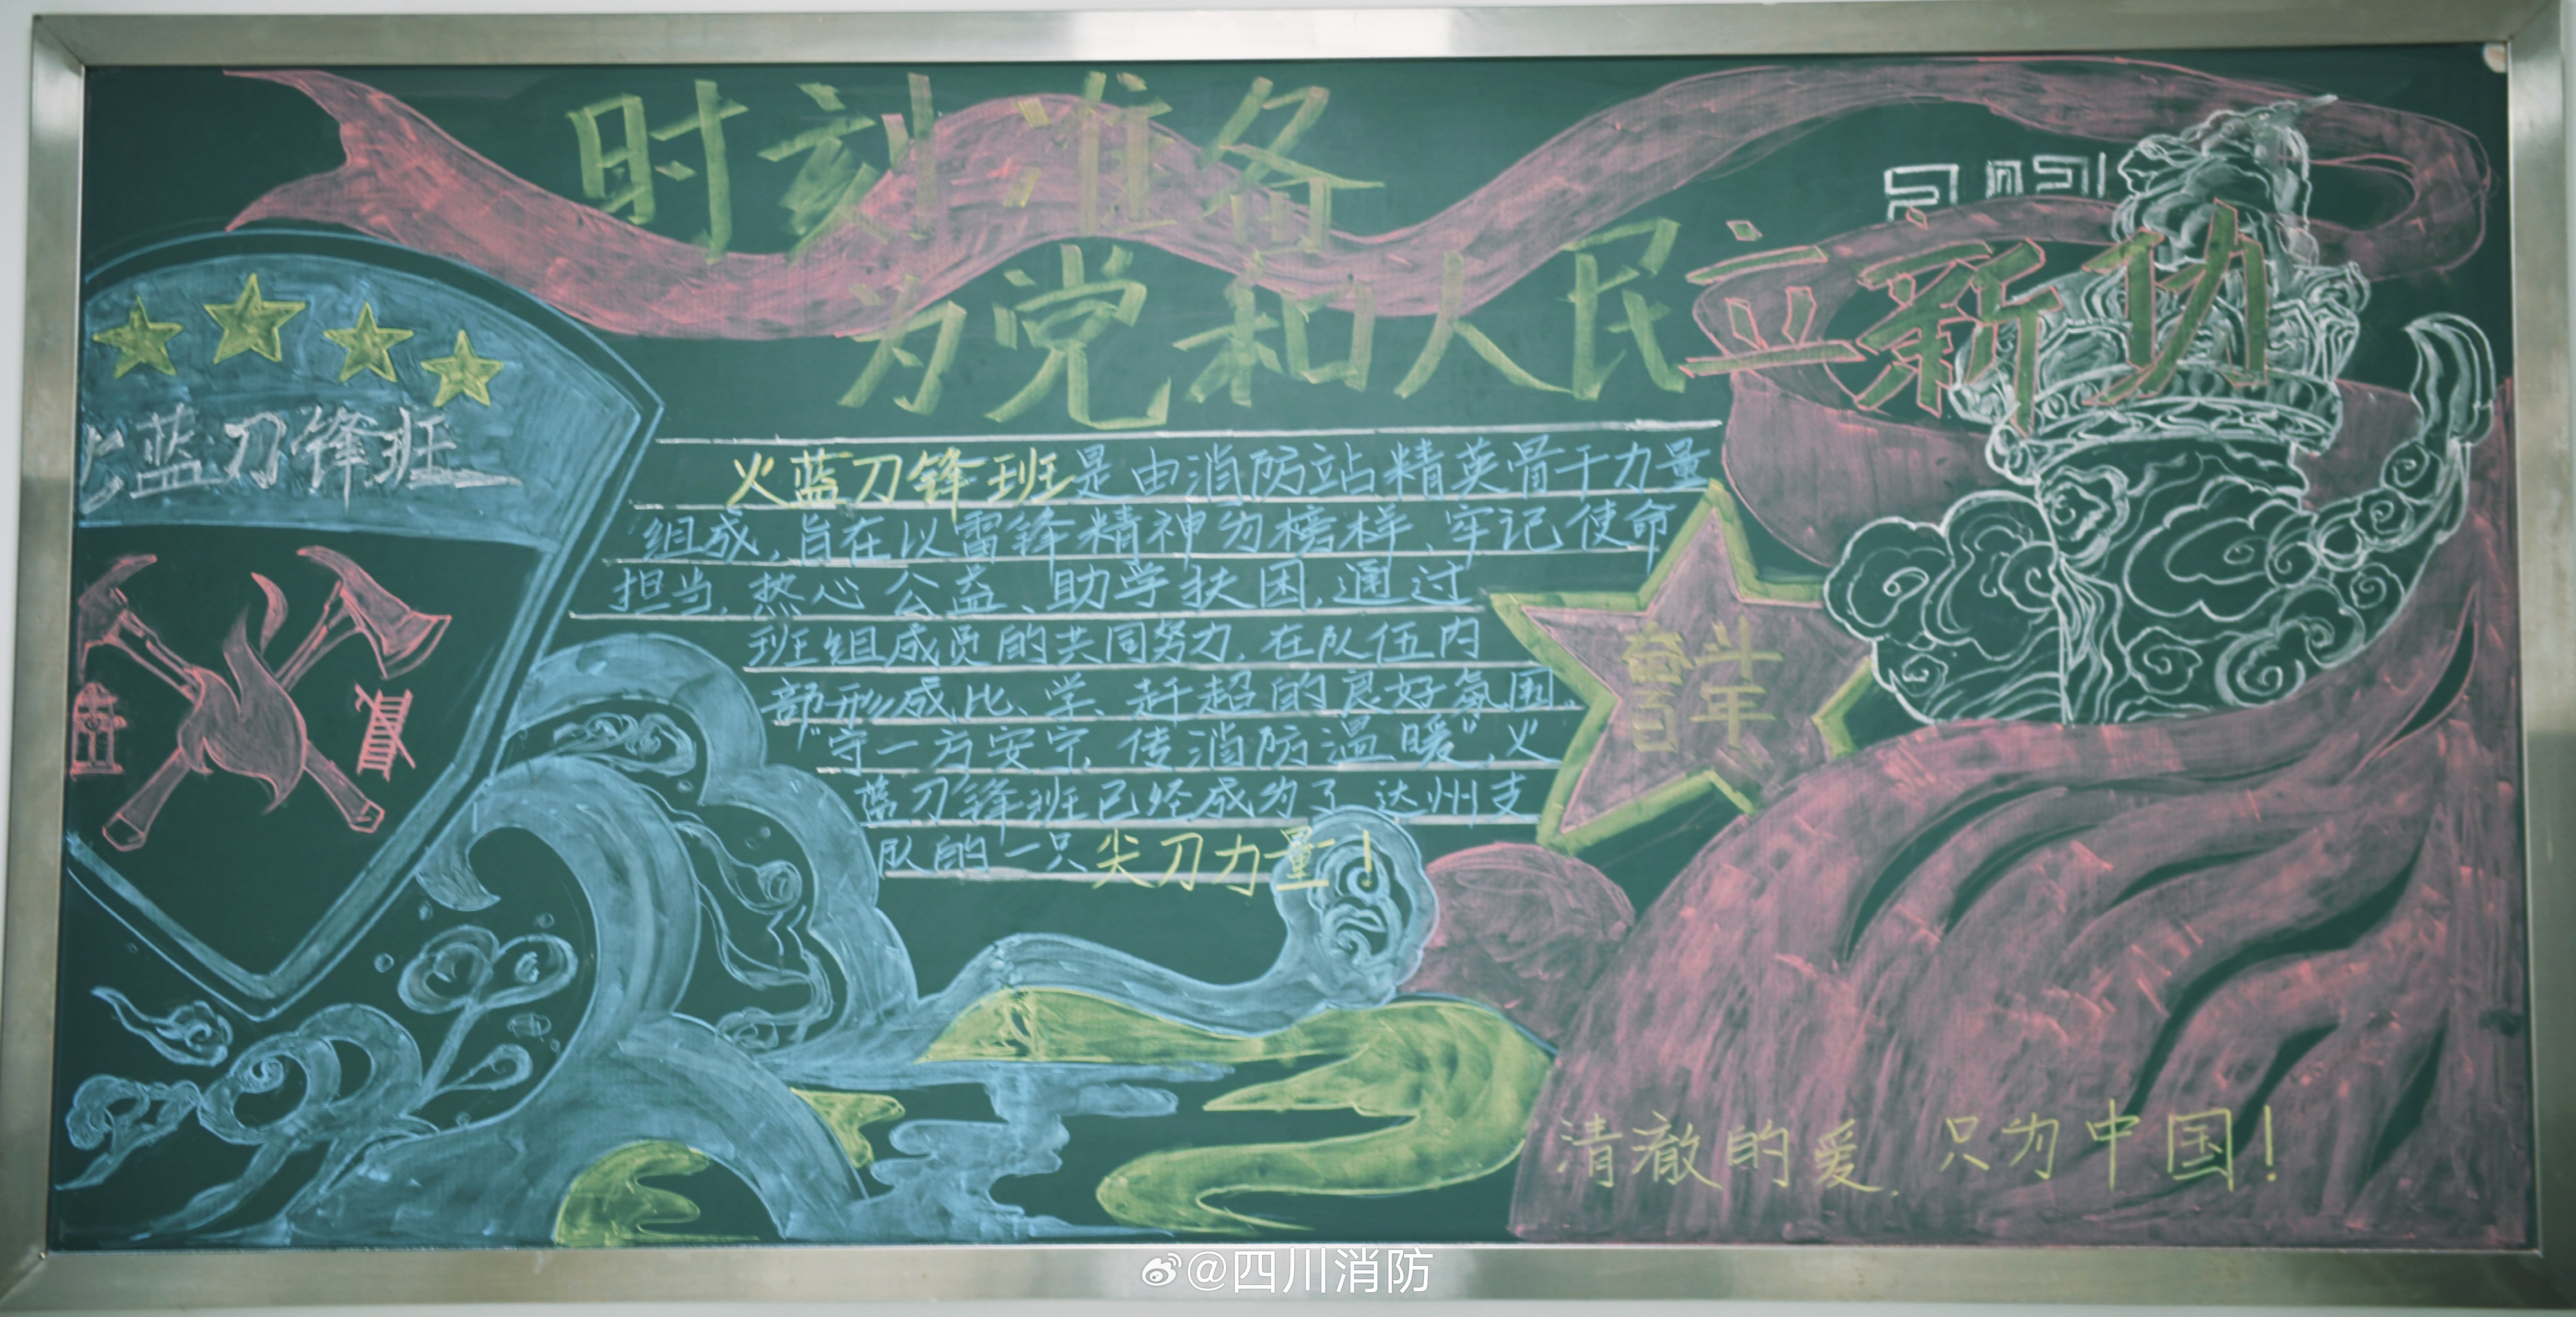 时刻准备
为党和人民立新功
火蓝刀锋班
火蓝刀锋班是由消防站精英骨干力量
组成,旨在以雷锋精神为榜样、牢记使命
担当,热心公益、助学扶困,通过
班组成员的共同努力,在队伍内
部形成比、学、赶超的良好氛围。
"守一方安宁,传消防温暖",火
蓝刀锋班已经成为了达州支
队的一只尖刀力量!
奋斗
百年
清澈的爱,只为中国!
@四川消防